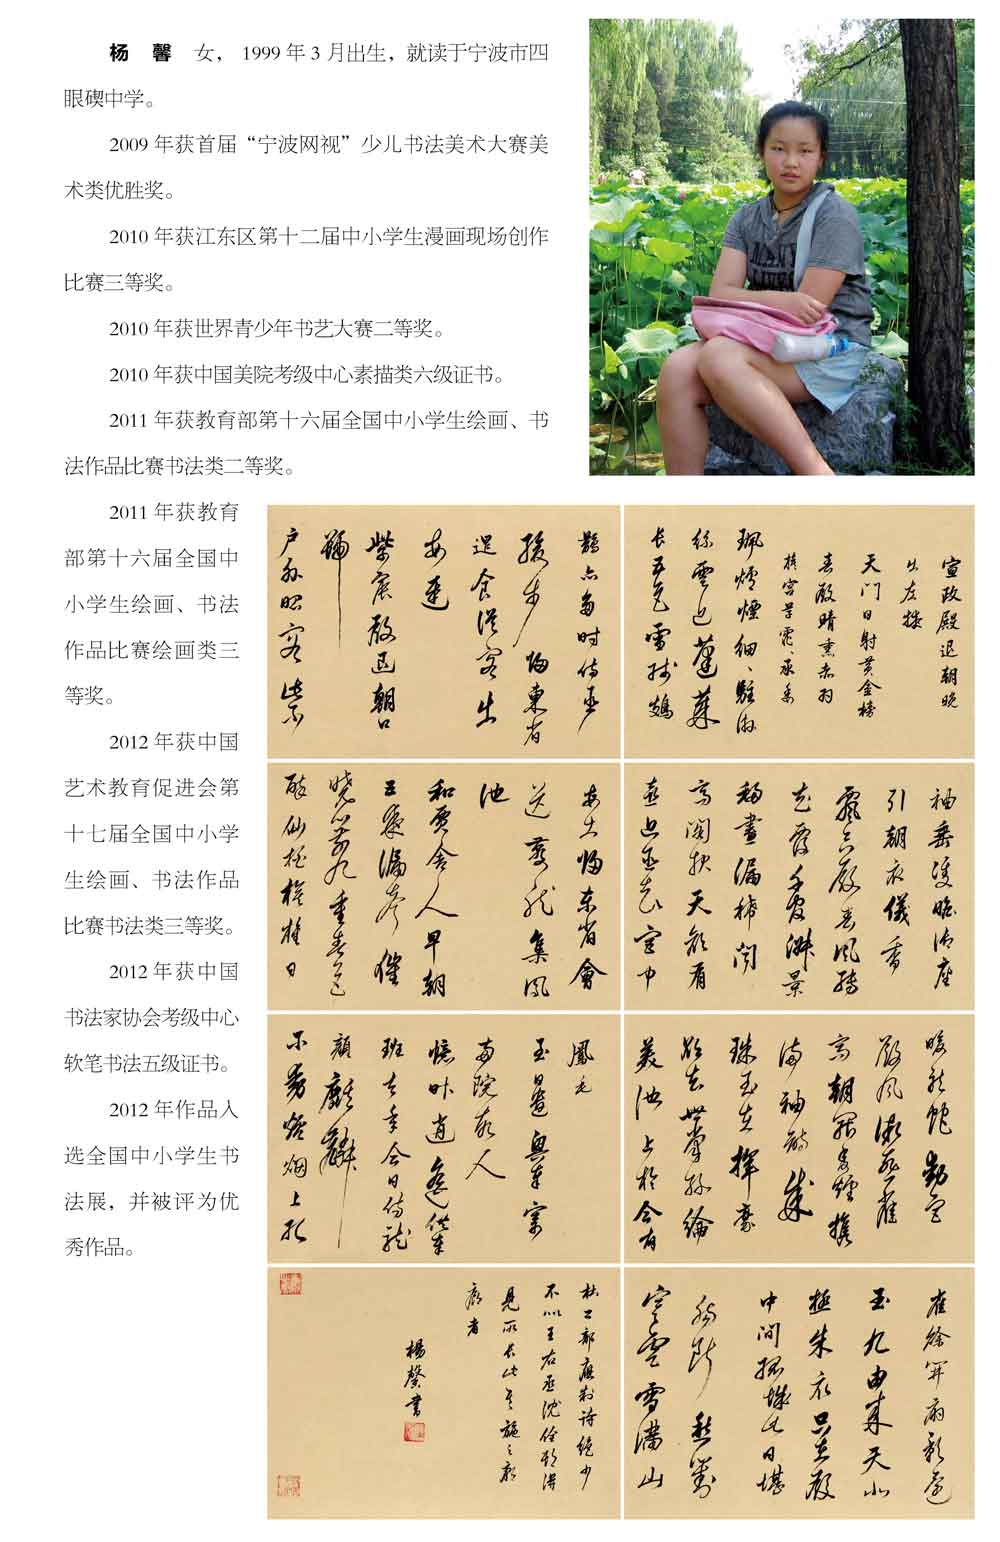 杨 馨 女， 1999 年 3 月出生，就读于宁波市四
眼碶中学。
2009 年获首届“宁波网视”少儿书法美术大赛美
术类优胜奖。
2010 年获江东区第十二届中小学生漫画现场创作
比赛三等奖。
2010 年获世界青少年书艺大赛二等奖。
2010 年获中国美院考级中心素描类六级证书。
2011 年获教育部第十六届全国中小学生绘画、书
法作品比赛书法类二等奖。
2011 年获教育
部第十六届全国中
小学生绘画、书法
作品比赛绘画类三
等奖。
2012 年获中国
艺术教育促进会第
十七届全国中小学
生绘画、书法作品
比赛书法类三等奖。
2012 年获中国
书法家协会考级中心
软笔书法五级证书。
2012 年作品入
选全国中小学生书
法展，并被评为优
秀作品。
宣政殿退朝晚
出左掖
天门日射黄金榜
春殿晴熏赤羽
旗宫草霏霏承委
珮爐煙細細駐游
絲雲近蓬莱
長五色雪残鳷
鵲亦多时侍臣
緩步归東省
退食從容出
每遲
紫宸殿退朝口
號
户外昭容紫
袖垂雙瞻御座
引朝衣儀香
飄合殿春风转
花覆千官淑景
移晝漏稀闻
高阁报天颜有
喜近臣知宫中
每出归东省會
送夔龙集凤
池
和贾舍人早朝
五夜漏声催
晓箭九重春色
醉仙桃旌旗日
暖龙蛇動宫
殿风微燕雀
高朝罷香煙携
满袖詩成
珠玉在揮毫
欲知世掌丝綸
美池上於今有
鳳毛
至日遣興寄
两院故人
憶昨逍遥供奉
班去年今日侍龙
颜麒麟
不動炉烟上孔
雀徐開扇影還
玉几由来天北
極朱衣只在殿
中間孤城此日堪
腸断愁對
寒雲雪满山
杜工部應制诗絶少
不似王右丞沈佺期得
見所長
者
楊馨書